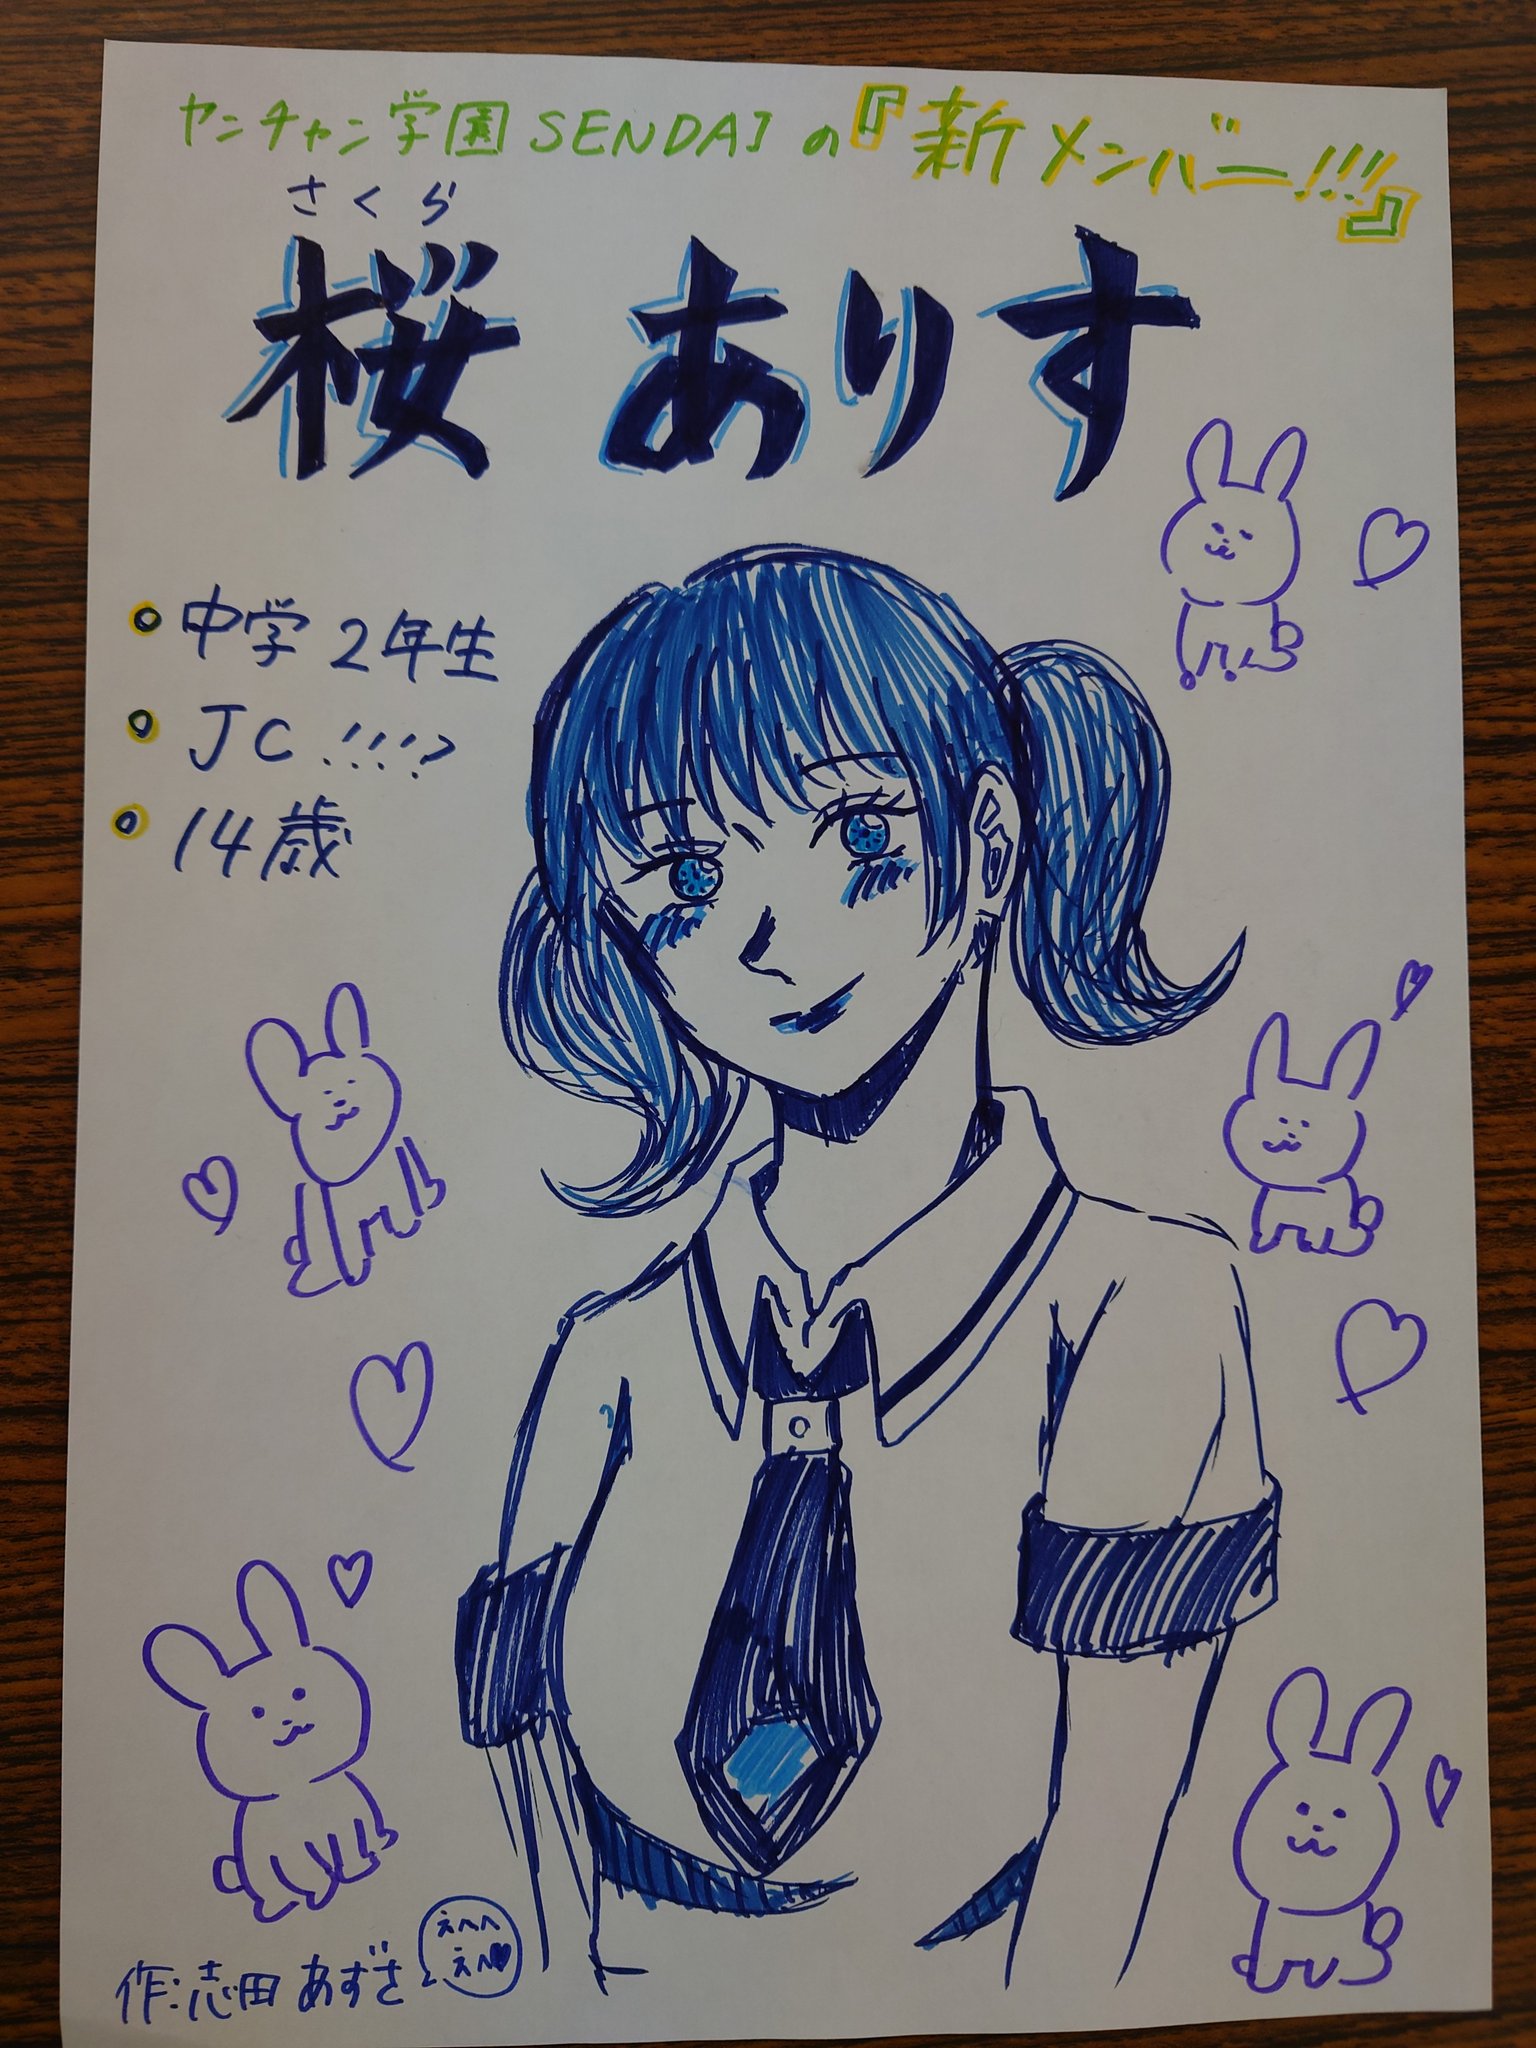 ヤンチャン学園SENDAIの『新メンバー!!!』
さくら
桜ありす
・中学2年生
・JC!!!?
・14歳
作:志田あずさ
えへへ
えへ♥